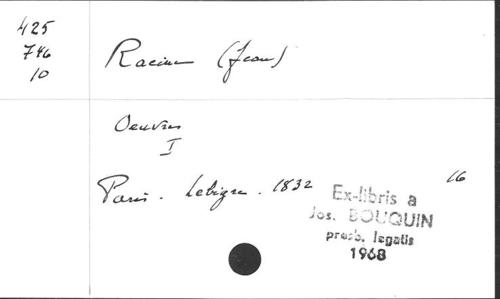 425
746
10
Racine (Jean)
Oeuvres
I
Paris. Lebigre. 1832
16
Ex-libris a
Jos. BOUQUIN
presb. legatis
1968